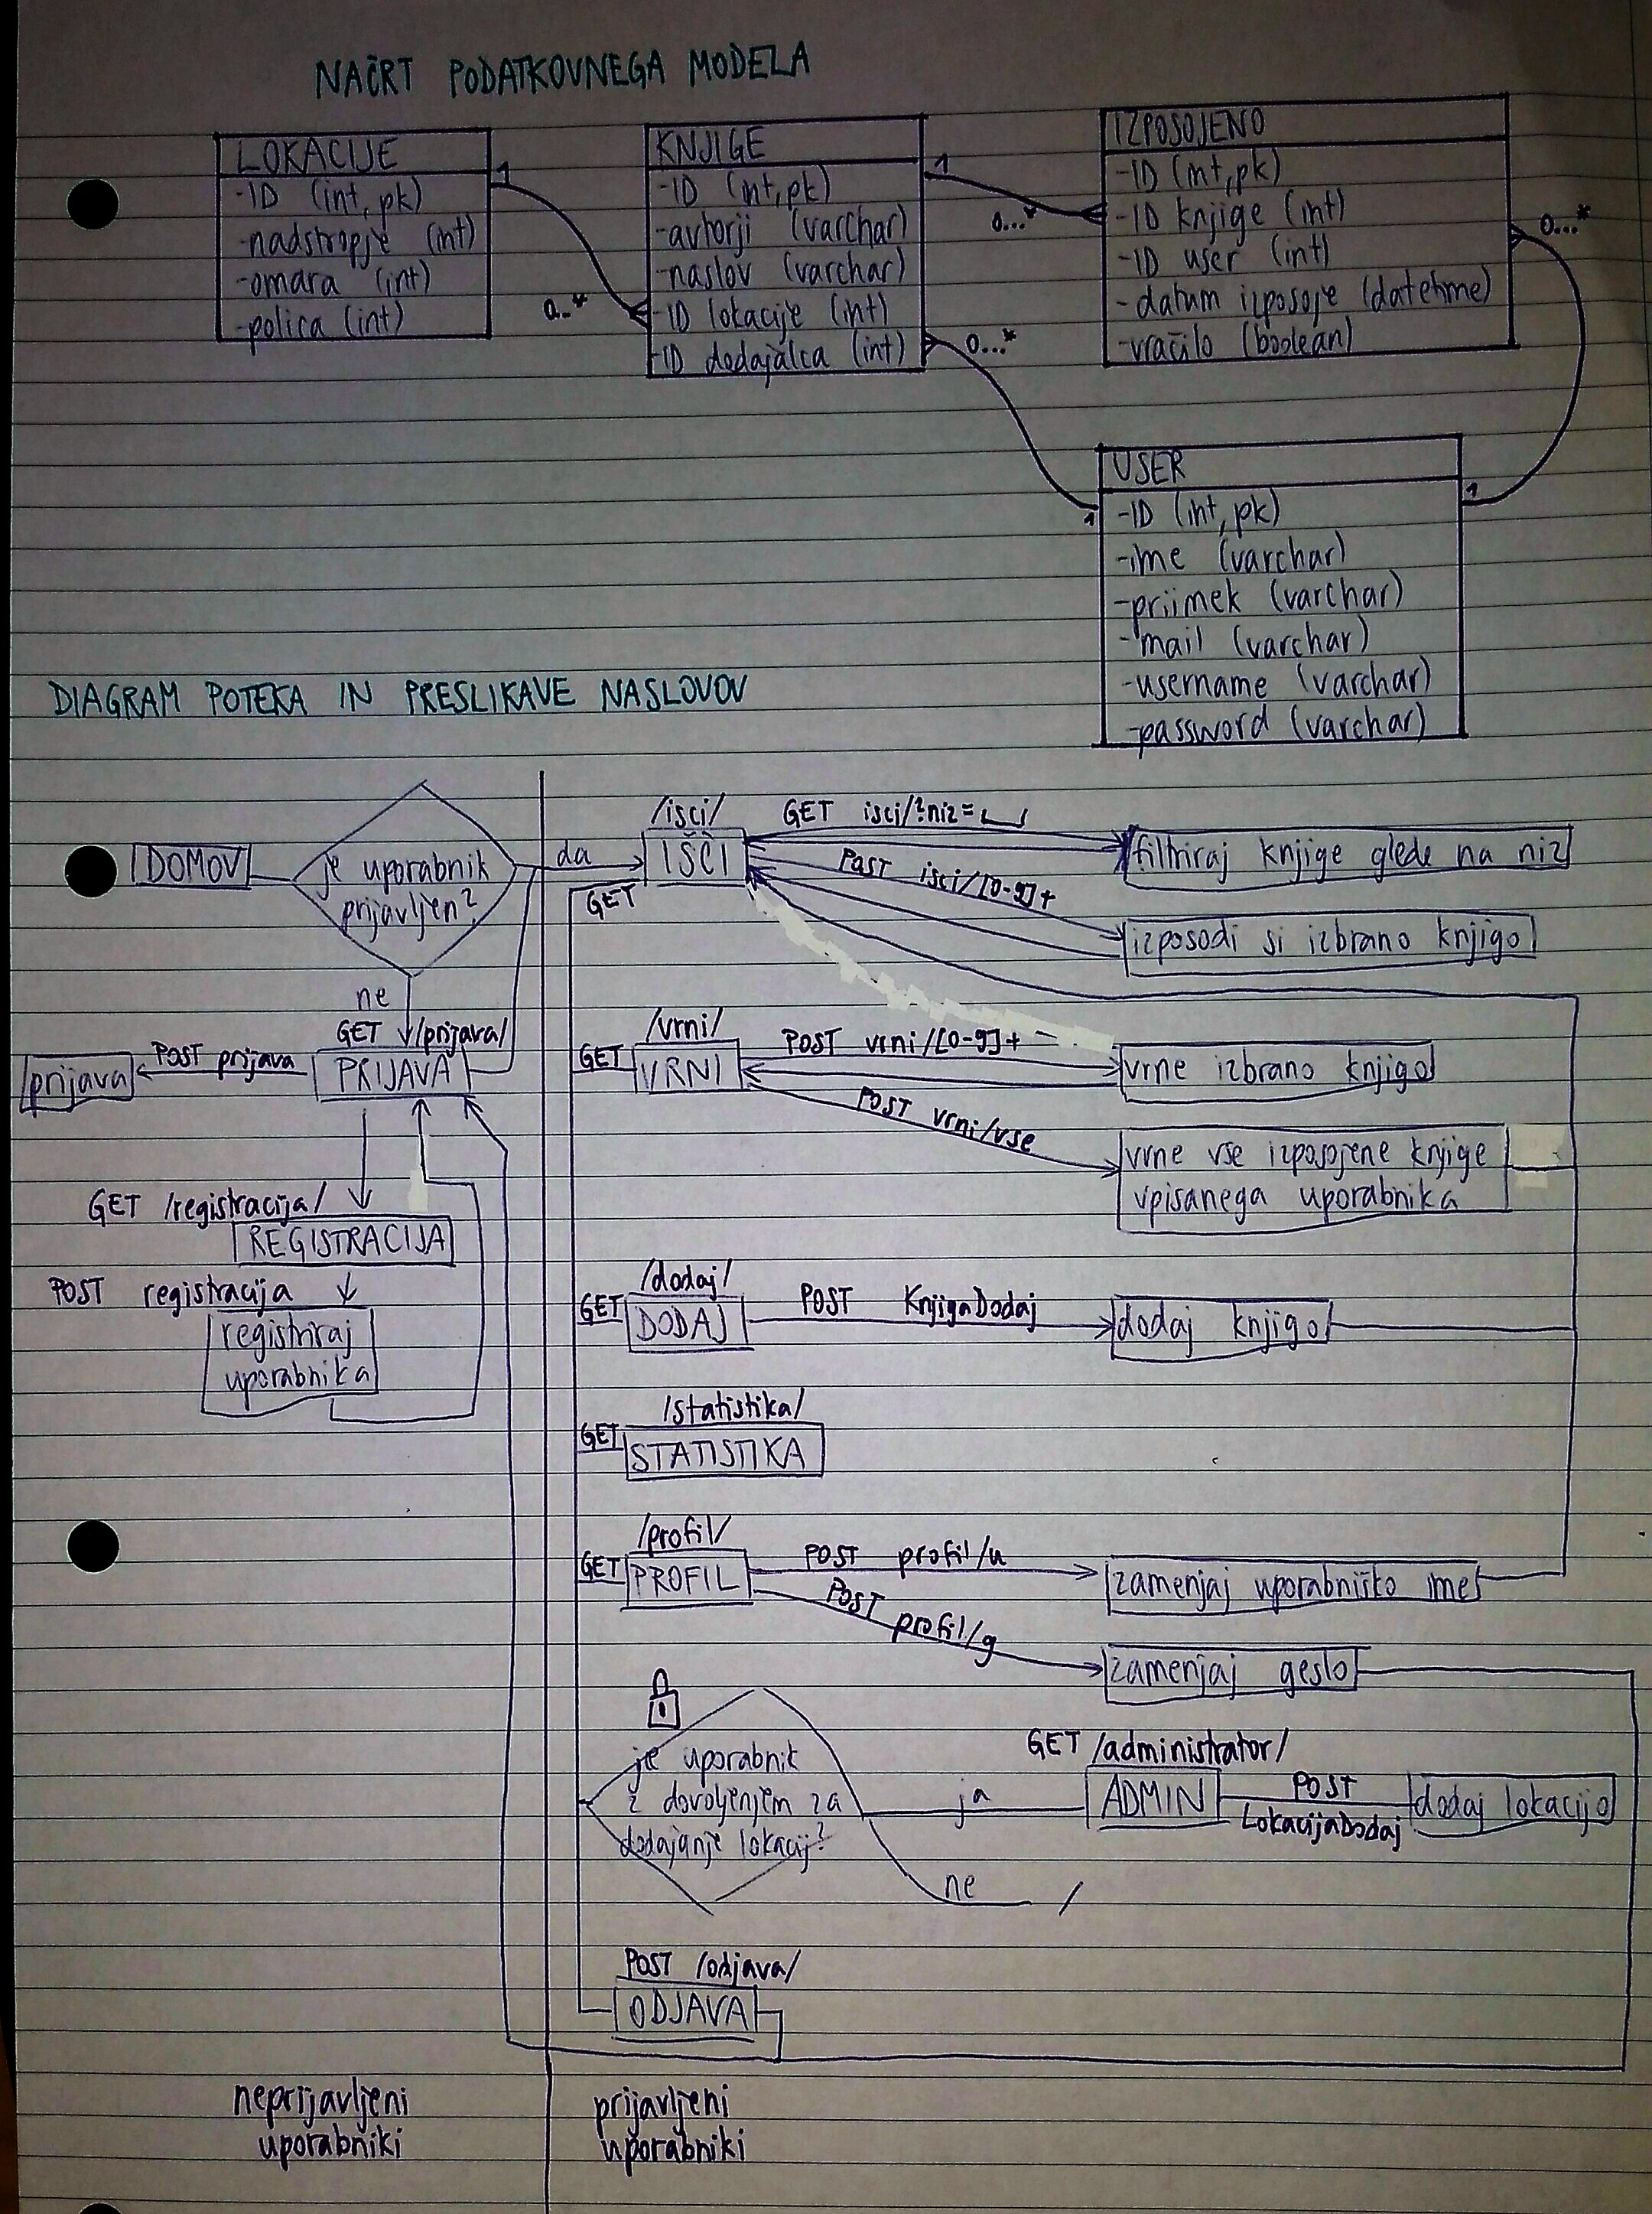 NAČRT PODATKOVNEGA MODELA
LOKACIJE
-ID (int, pk)
-nadstropje (int)
-omara (int)
-polica (int)
1
0..*
KNJIGE
-ID (int, pk)
-avtorji (varchar)
-naslov (varchar)
-ID lokacije (int)
-ID dodajalca (int)
1
0...*
0...*
IZPOSOJENO
-ID (int, pk)
-ID knjige (int)
-ID user (int)
-datum izposoje (datetime)
-vračilo (boolean)
0...*
USER
1
1
-ID (int, pk)
-ime (varchar)
-priimek (varchar)
-mail (varchar)
-username (varchar)
-password (varchar)
DIAGRAM POTEKA IN PRESLIKAVE NASLOVOV
DOMOV
je uporabnik
prijavljen?
da
ne
GET /prijava/
PRIJAVA
POST prijava
prijava
GET /registracija/
REGISTRACIJA
POST registracija
registriraj
uporabnika
/isci/
IŠČI
GET
GET isci/?niz=
filtriraj knjige glede na niz
POST isci/[0-9]+
izposodi si izbrano knjigo
/vrni/
GET
VRNI
POST vrni/[0-9]+
vrne izbrano knjigo
POST vrni/vse
vrne vse izposojene knjige
vpisanega uporabnika
/dodaj/
GET
DODAJ
POST KnjigaDodaj
dodaj knjigo
/statistika/
GET
STATISTIKA
/profil/
GET
PROFIL
POST profil/u
zamenjaj uporabniško ime
POST profil/g
zamenjaj geslo
je uporabnik
z dovoljenjem za
dodajanje lokacij?
ja
ne /
GET /administrator/
ADMIN
POST
LokacijaDodaj
dodaj lokacijo
POST /odjava/
ODJAVA
neprijavljeni
uporabniki
prijavljeni
uporabniki